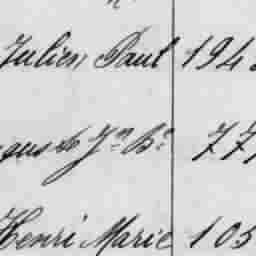 Julien Paul 194
guste Jn Bte 77
Henri Marie 105